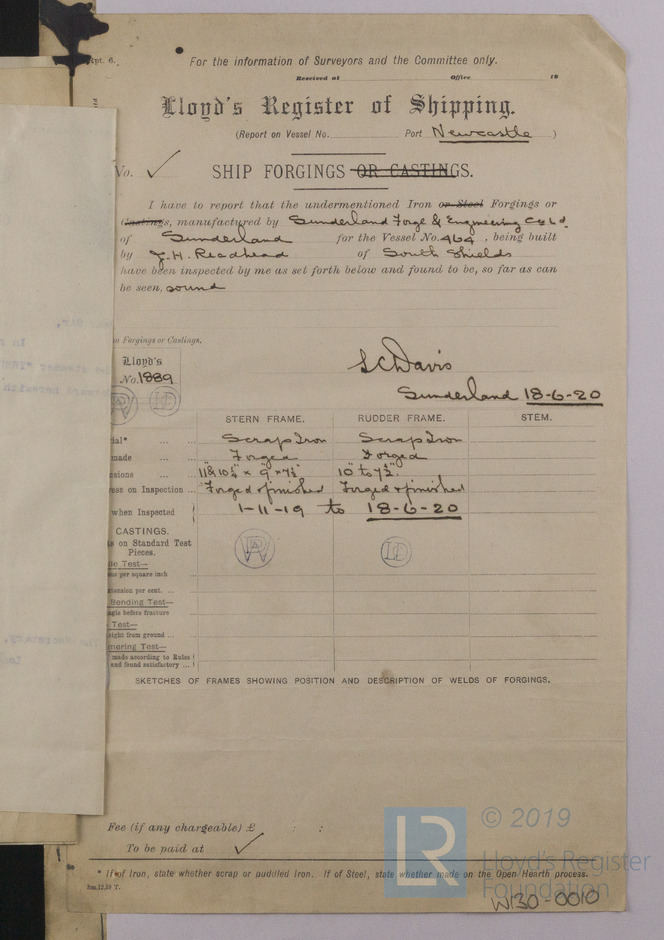 pt. 6.
For the information of Surveyors and the Committee only.
Received at Office 18
Lloyd's Register of Shipping.
(Report on Vessel No. Port Newcastle )
No. ✓ SHIP FORGINGS OR CASTINGS.
I have to report that the undermentioned Iron or Steel Forgings or
Castings, manufactured by Sunderland Forge & Engineering Co Ld.
of Sunderland for the Vessel No. 464, being built
by J.H. Readhead of South Shields
have been inspected by me as set forth below and found to be, so far as can
be seen, sound
n Forgings or Castings.
Lloyd's
No. 1889
S C Davis
Sunderland 18-6-20
STERN FRAME. RUDDER FRAME. STEM.
ial* Scrap Iron Scrap Iron
made Forged Forged
sions 11" & 10½" × 9" × 7½" 10" to 7½"
ess on Inspection Forged & finished Forged & finished
when Inspected 1-11-19 to 18-6-20
CASTINGS.
s on Standard Test
Pieces.
le Test—
ns per square inch
tension per cent.
Bending Test—
ngle before fracture
Test—
eight from ground
mering Test—
made according to Rules
and found satisfactory
SKETCHES OF FRAMES SHOWING POSITION AND DESCRIPTION OF WELDS OF FORGINGS.
Fee (if any chargeable) £ : :
To be paid at ✓
* If of Iron, state whether scrap or puddled Iron. If of Steel, state whether made on the Open Hearth process.
LR
© 2019
Lloyd's Register
Foundation
W130-0010